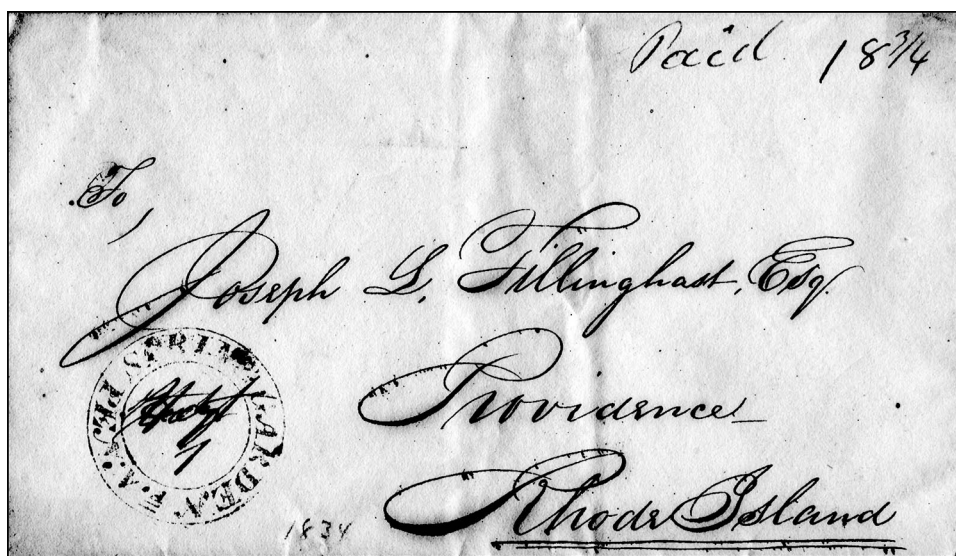 Paid 18 3/4
To,
Joseph L. Tillinghast, Esq.
Providence
Rhode Island
SPRING GARDEN PA.
1834